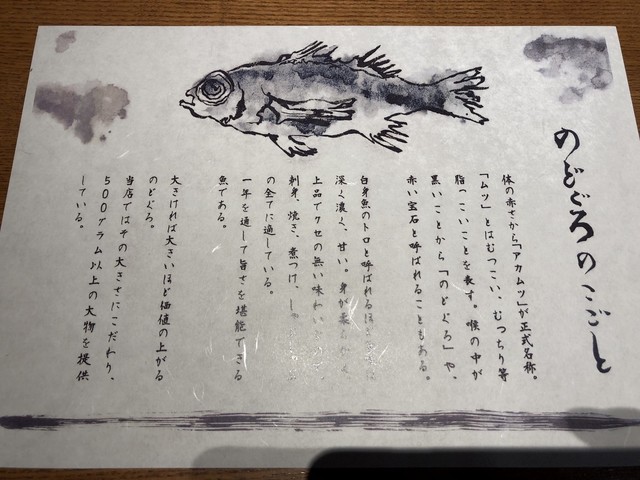 のどぐろのこごと
体の赤さから「アカムツ」が正式名称。
「ムツ」とはむつこい、むつちり等
脂っこいことを表す。喉の中が
黒いことから「のどぐろ」や、
赤い宝石と呼ばれることもある。
白身魚のトロと呼ばれるほど
深く濃く、甘い。身が柔らかく
上品でクセの無い味わい
刺身、焼き、煮つけ、しゃ
の全てに適している。
一年を通して旨さを堪能できる
魚である。
大きければ大きいほど価値の上がる
のどぐろ。
当店ではその大きさにこだわり、
500グラム以上の大物を提供
している。